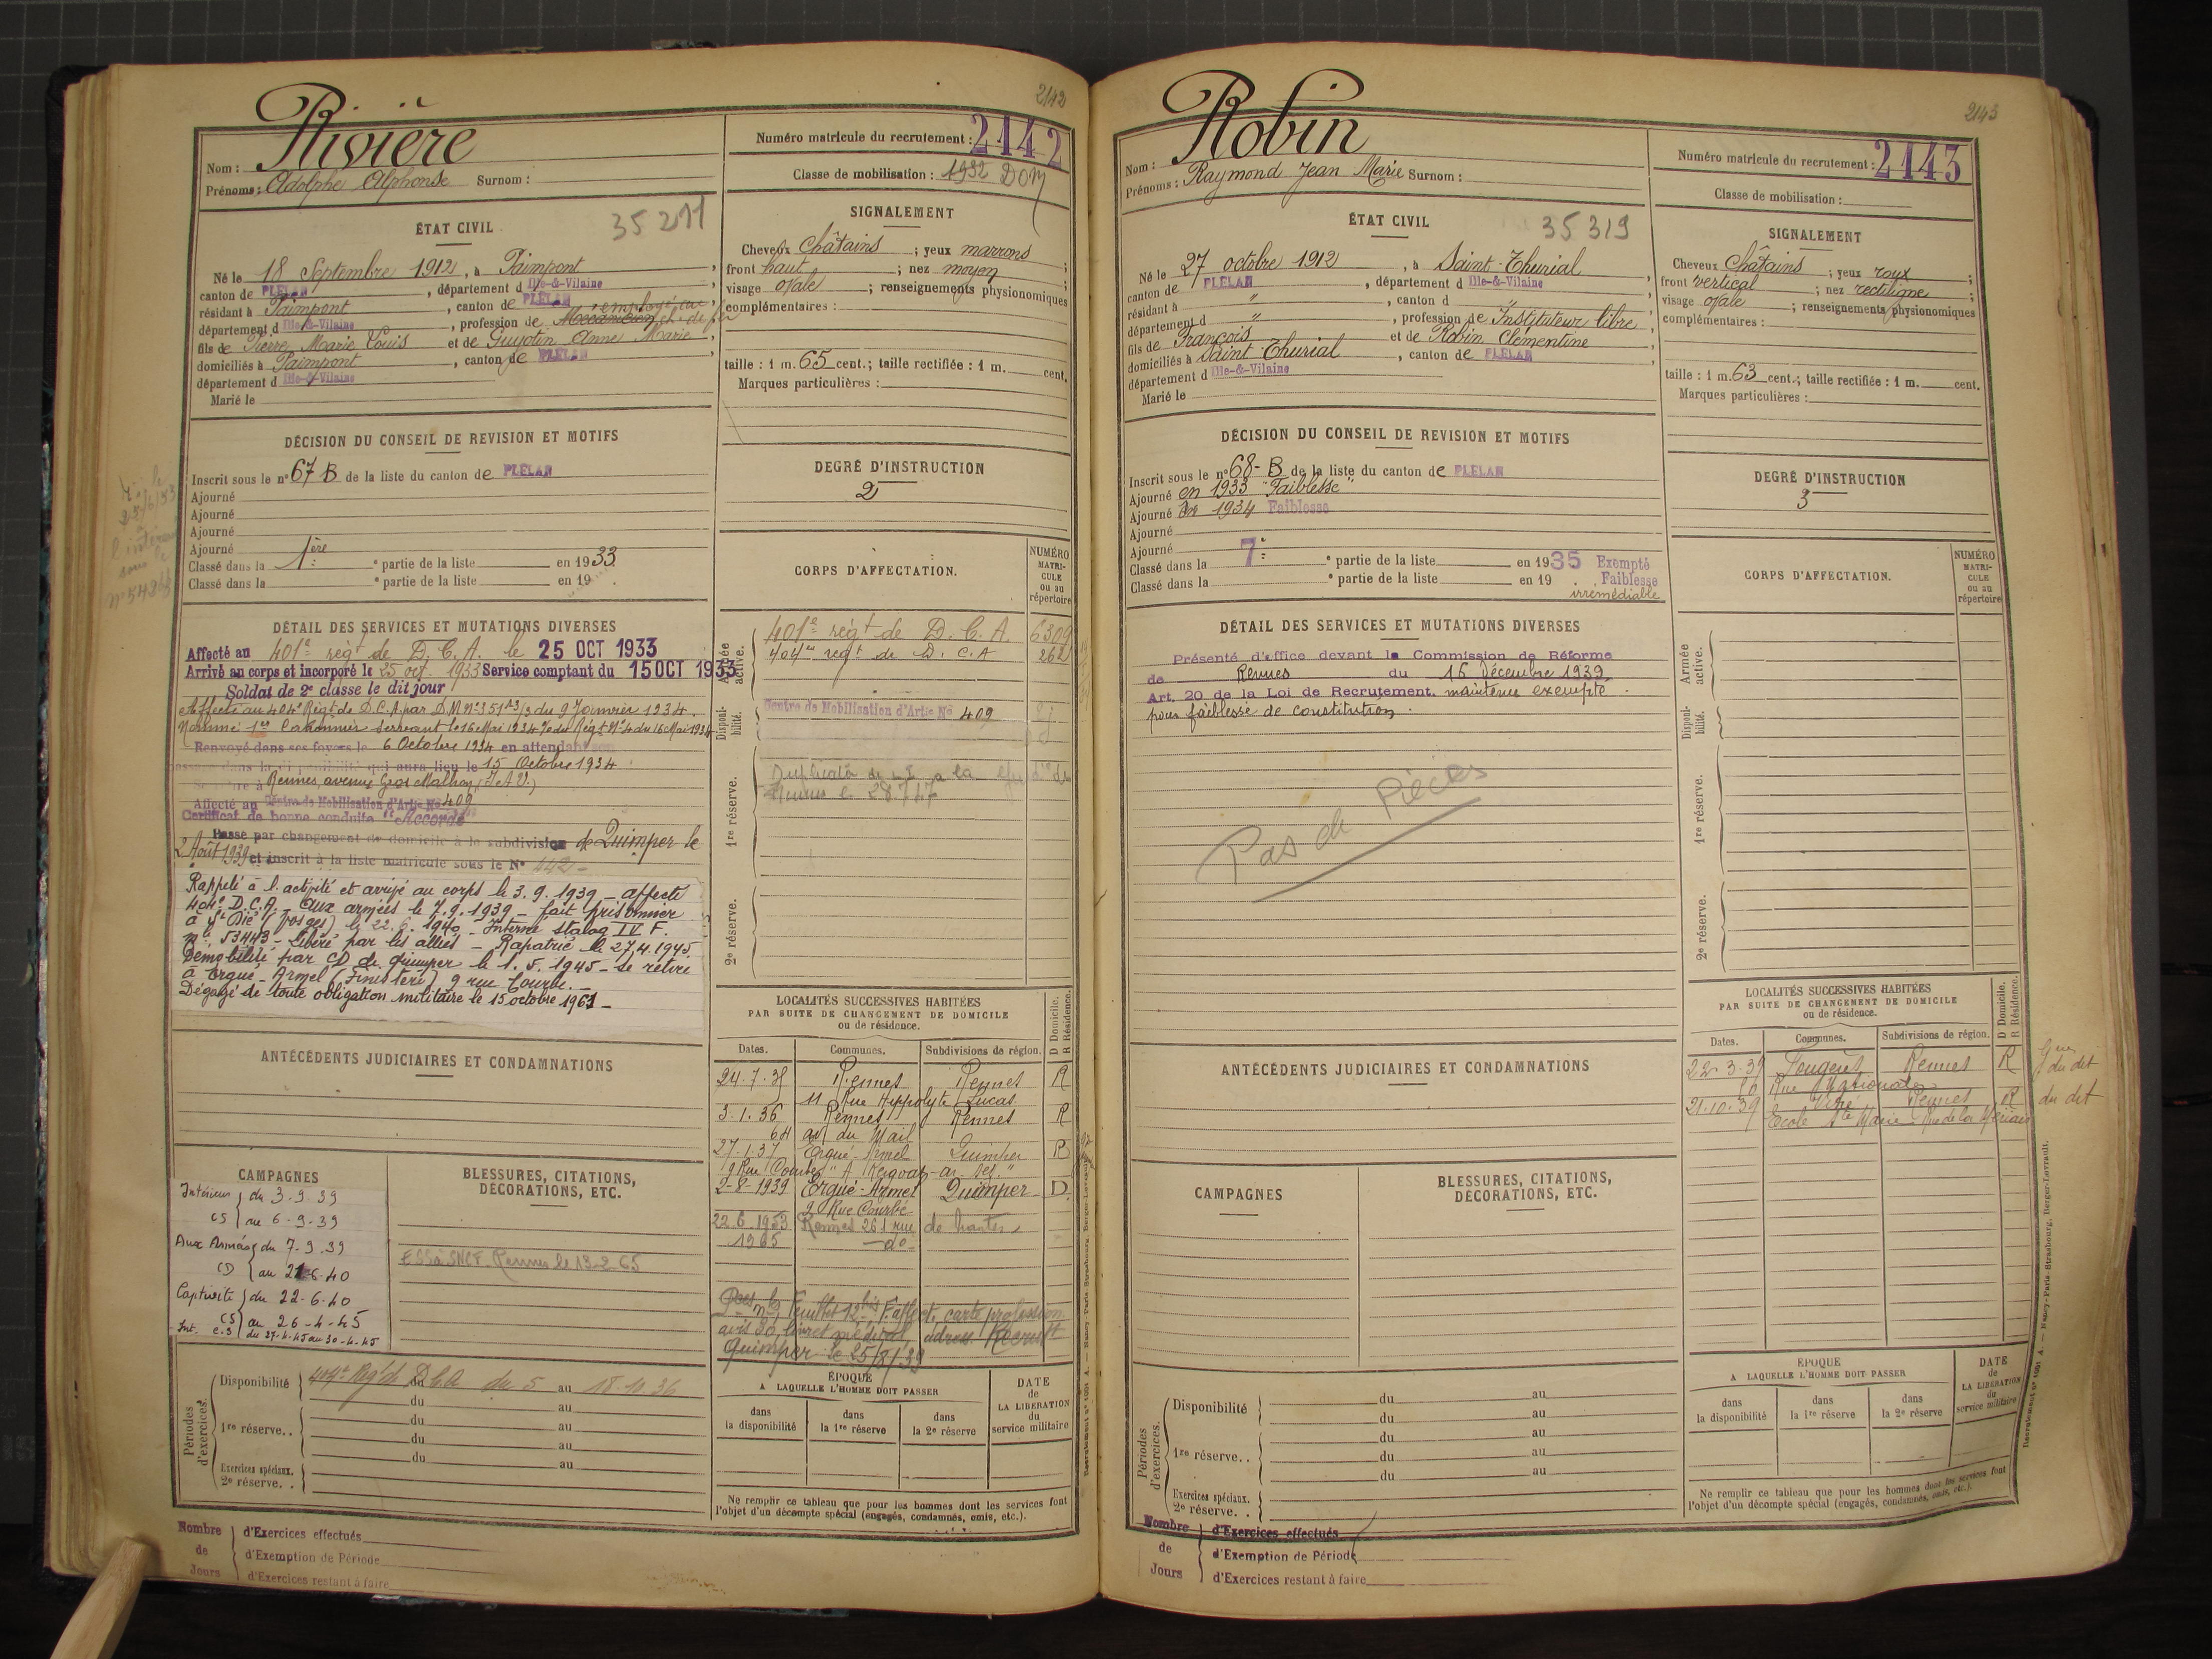 2142
Rivière
Nom :
Prénoms : Adolphe Alphonse Surnom :
Numéro matricule du recrutement : 2142
Classe de mobilisation : 1932 Dom
ÉTAT CIVIL
35 211
Né le 18 Septembre 1912, à Paimpont,
canton de PLÉLAN, département d Ille-&-Vilaine,
résidant à Paimpont, canton de PLÉLAN,
département d Ille-&-Vilaine, profession de Mécanicien employé au ch. de fer
fils de Pierre Marie Louis et de Guyotin Anne Marie,
domiciliés à Paimpont, canton de PLÉLAN,
département d Ille-&-Vilaine
Marié le
SIGNALEMENT
Cheveux Châtains ; yeux marrons ;
front haut ; nez moyen ;
visage ovale ; renseignements physionomiques
complémentaires :
taille : 1 m. 65 cent.; taille rectifiée : 1 m. cent.
Marques particulières :
DÉCISION DU CONSEIL DE REVISION ET MOTIFS
Inscrit sous le n° 67 B de la liste du canton de PLÉLAN
Ajourné
Ajourné
Ajourné
Ajourné
Classé dans la 1ère e partie de la liste en 1933
Classé dans la e partie de la liste en 19 .
DEGRÉ D'INSTRUCTION
2
CORPS D'AFFECTATION.
NUMÉRO MATRICULE ou au répertoire
Armée active.
401e régt de D. C. A. 6309
404me régt de D. C. A 262
Disponibilité.
Centre de Mobilisation d'Artie No 409
1re réserve.
2e réserve.
DÉTAIL DES SERVICES ET MUTATIONS DIVERSES
Affecté au 401e régt de D. C. A. le 25 OCT 1933
Arrivé au corps et incorporé le 25 oct. 1933 Service comptant du 15 OCT 1933
Soldat de 2e classe le dit jour
Affecté au 404e Régt de D.C.A par D.M. n° 351 /3 du 9 Janvier 1934.
Nommé 1er Canonnier servant le 16 Mai 1934 du Régt N°4 du 16 Mai 1934
Renvoyé dans ses foyers le 6 Octobre 1934 en attendant son
passage dans la disponibilité qui aura lieu le 15 Octobre 1934
Se retire à Rennes, avenue Gros Malhon (I et V.)
Affecté au Centre de Mobilisation d'Artie No 409
Certificat de bonne conduite "Accordé"
Passé par changement de domicile à la subdivision de Quimper le
2 Août 1939 et inscrit à la liste matricule sous le N° 442 -
Rappelé à l'activité et arrivé au corps le 3.9.1939 - affecté
404e D.C.A. - Aux armées le 7.9.1939 - fait prisonnier
à St Dié (Vosges) le 22.6.1940 - Interné stalag IV F.
n° 53443 - Libéré par les alliés - Rapatrié le 27.4.1945
Démobilisé par CD de Quimper le 1.5.1945 - se retire
à Ergué-Armel (Finistère) 9 rue Courbe. -
Dégagé de toute obligation militaire le 15 octobre 1961 -
ANTÉCÉDENTS JUDICIAIRES ET CONDAMNATIONS
LOCALITÉS SUCCESSIVES HABITÉES
PAR SUITE DE CHANGEMENT DE DOMICILE
ou de résidence.
D Domicile.
R Résidence.
Dates. Communes. Subdivisions de région.
24.7.35 Rennes Rennes R
11 Rue Hippolyte Lucas
3.1.36 Rennes Rennes R
64 av du Mail
27.1.37 Ergué-Armel Quimper R
2-8-1939 Ergué-Armel Quimper D.
9 Rue Courbe
22.6.1953 Rennes 261 rue de Nantes
1965 - do -
Quimper le 25/8/39
CAMPAGNES
Intérieur CS du 3.9.39
au 6.9.39
Aux Armées CD du 7.9.39
au 21.6.40
Captivité CS du 22.6.40
au 26-4-45
Int. C.S du 27.4.45 au 30.4.45
BLESSURES, CITATIONS,
DÉCORATIONS, ETC.
ESS à SNCF. Rennes le 13.2.65
Périodes d'exercices.
Disponibilité 404e Régt de D.C.A du 5 au 18.10.36
du au
1re réserve. . du au
du au
du au
Exercices spéciaux.
2e réserve. .
ÉPOQUE
A LAQUELLE L'HOMME DOIT PASSER
dans la disponibilité
dans la 1re réserve
dans la 2e réserve
DATE de LA LIBÉRATION du service militaire
Ne remplir ce tableau que pour les hommes dont les services font
l'objet d'un décompte spécial (engagés, condamnés, omis, etc.).
Nombre de Jours
d'Exercices effectués
d'Exemption de Période
d'Exercices restant à faire
2143
Robin
Nom :
Prénoms : Raymond Jean Marie Surnom :
Numéro matricule du recrutement : 2143
Classe de mobilisation :
ÉTAT CIVIL
35 319
Né le 27 octobre 1912, à Saint-Thurial,
canton de PLÉLAN, département d Ille-&-Vilaine,
résidant à ", canton d ",
département d ", profession de Instituteur libre,
fils de François et de Robin Clémentine,
domiciliés à Saint Thurial, canton de PLÉLAN,
département d Ille-&-Vilaine
Marié le
SIGNALEMENT
Cheveux Châtains ; yeux roux ;
front vertical ; nez rectiligne ;
visage ovale ; renseignements physionomiques
complémentaires :
taille : 1 m. 63 cent.; taille rectifiée : 1 m. cent.
Marques particulières :
DÉCISION DU CONSEIL DE REVISION ET MOTIFS
Inscrit sous le n° 68-B de la liste du canton de PLÉLAN
Ajourné en 1933 "Faiblesse"
Ajourné en 1934 Faiblesse
Ajourné
Ajourné
Classé dans la 7e e partie de la liste en 1935 Exempté
Classé dans la e partie de la liste en 19 . Faiblesse
irrémédiable
DEGRÉ D'INSTRUCTION
3
CORPS D'AFFECTATION.
NUMÉRO MATRICULE ou au répertoire
Armée active.
Disponibilité.
1re réserve.
2e réserve.
DÉTAIL DES SERVICES ET MUTATIONS DIVERSES
Présenté d'office devant la Commission de Réforme
de Rennes du 16 Décembre 1939
Art. 20 de la Loi de Recrutement. maintenu exempté
pour faiblesse de constitution.
Pas de Pièces
ANTÉCÉDENTS JUDICIAIRES ET CONDAMNATIONS
LOCALITÉS SUCCESSIVES HABITÉES
PAR SUITE DE CHANGEMENT DE DOMICILE
ou de résidence.
D Domicile.
R Résidence.
Dates. Communes. Subdivisions de région.
22.3.39 Fougères Rennes R
Rue Nationale
21.10.39 Vitré Rennes R du dit
Ecole Ste Marie
CAMPAGNES
BLESSURES, CITATIONS,
DÉCORATIONS, ETC.
Périodes d'exercices.
Disponibilité du au
du au
1re réserve. . du au
du au
du au
Exercices spéciaux.
2e réserve. .
ÉPOQUE
A LAQUELLE L'HOMME DOIT PASSER
dans la disponibilité
dans la 1re réserve
dans la 2e réserve
DATE de LA LIBÉRATION du service militaire
Ne remplir ce tableau que pour les hommes dont les services font
l'objet d'un décompte spécial (engagés, condamnés, omis, etc.).
Nombre de Jours
d'Exercices effectués
d'Exemption de Période
d'Exercices restant à faire